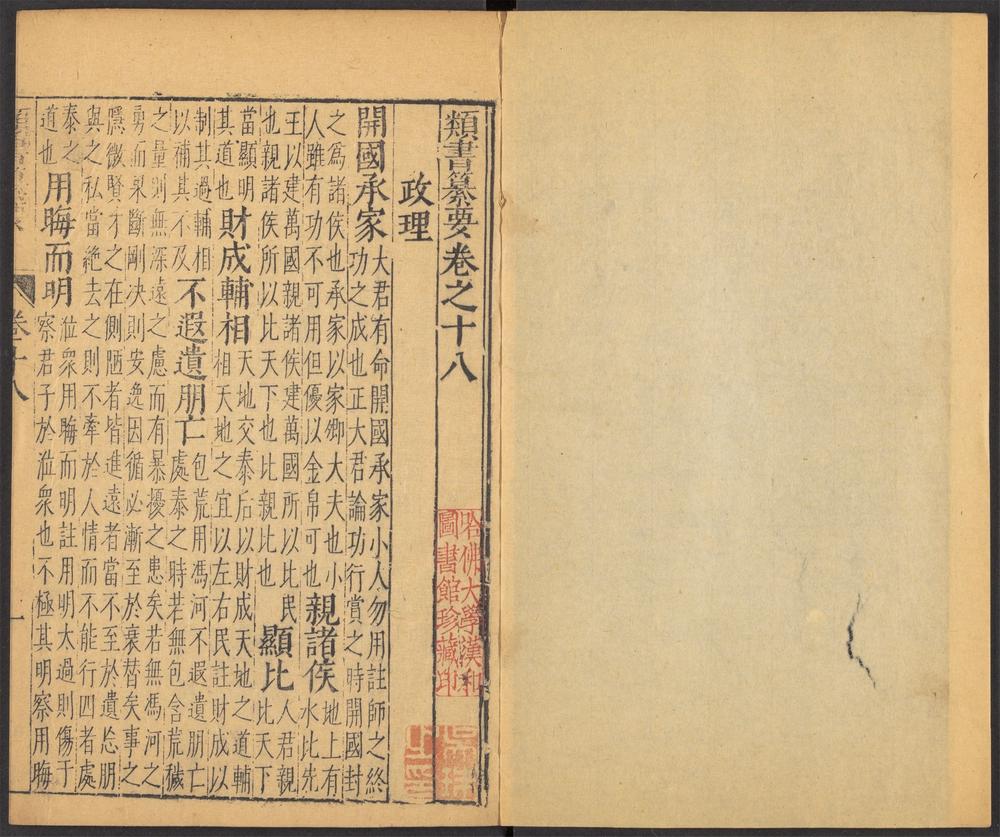 類書纂要卷之十八
哈佛大學漢和
圖書館珍藏印
政理
開國承家
大君有命開國承家小人勿用註師之終
功之成也正大君論功行賞之時開國封
之爲諸侯也承家以家卿大夫也小
人雖有功不可用但優以金帛可也
親諸侯
地上有
水比先
王以建萬國親諸侯建萬國所以比民
也親諸侯所以比天下也比親比也
顯比
人君親
比天下
當顯明
其道也
財成輔相
天地交泰后以財成天地之道輔
相天地之宜以左右民註財成以
制其過輔相
以補其不及
不遐遺朋亡
包荒用馮河不遐遺朋亡
處泰之時若無包含荒穢
之量則無深遠之慮而有暴擾之患矣若無馮河之
勇而果斷剛決則安逸因循必漸至於衰替矣事之
隱微賢才之在側陋者皆進遠者當不至於遺忘朋
與之私當絶去之則不牽於人情而不能行四者處
泰之
道也
用晦而明
涖衆用晦而明註用明太過則傷于
察君子於涖衆也不極其明察用晦
卷十八
一